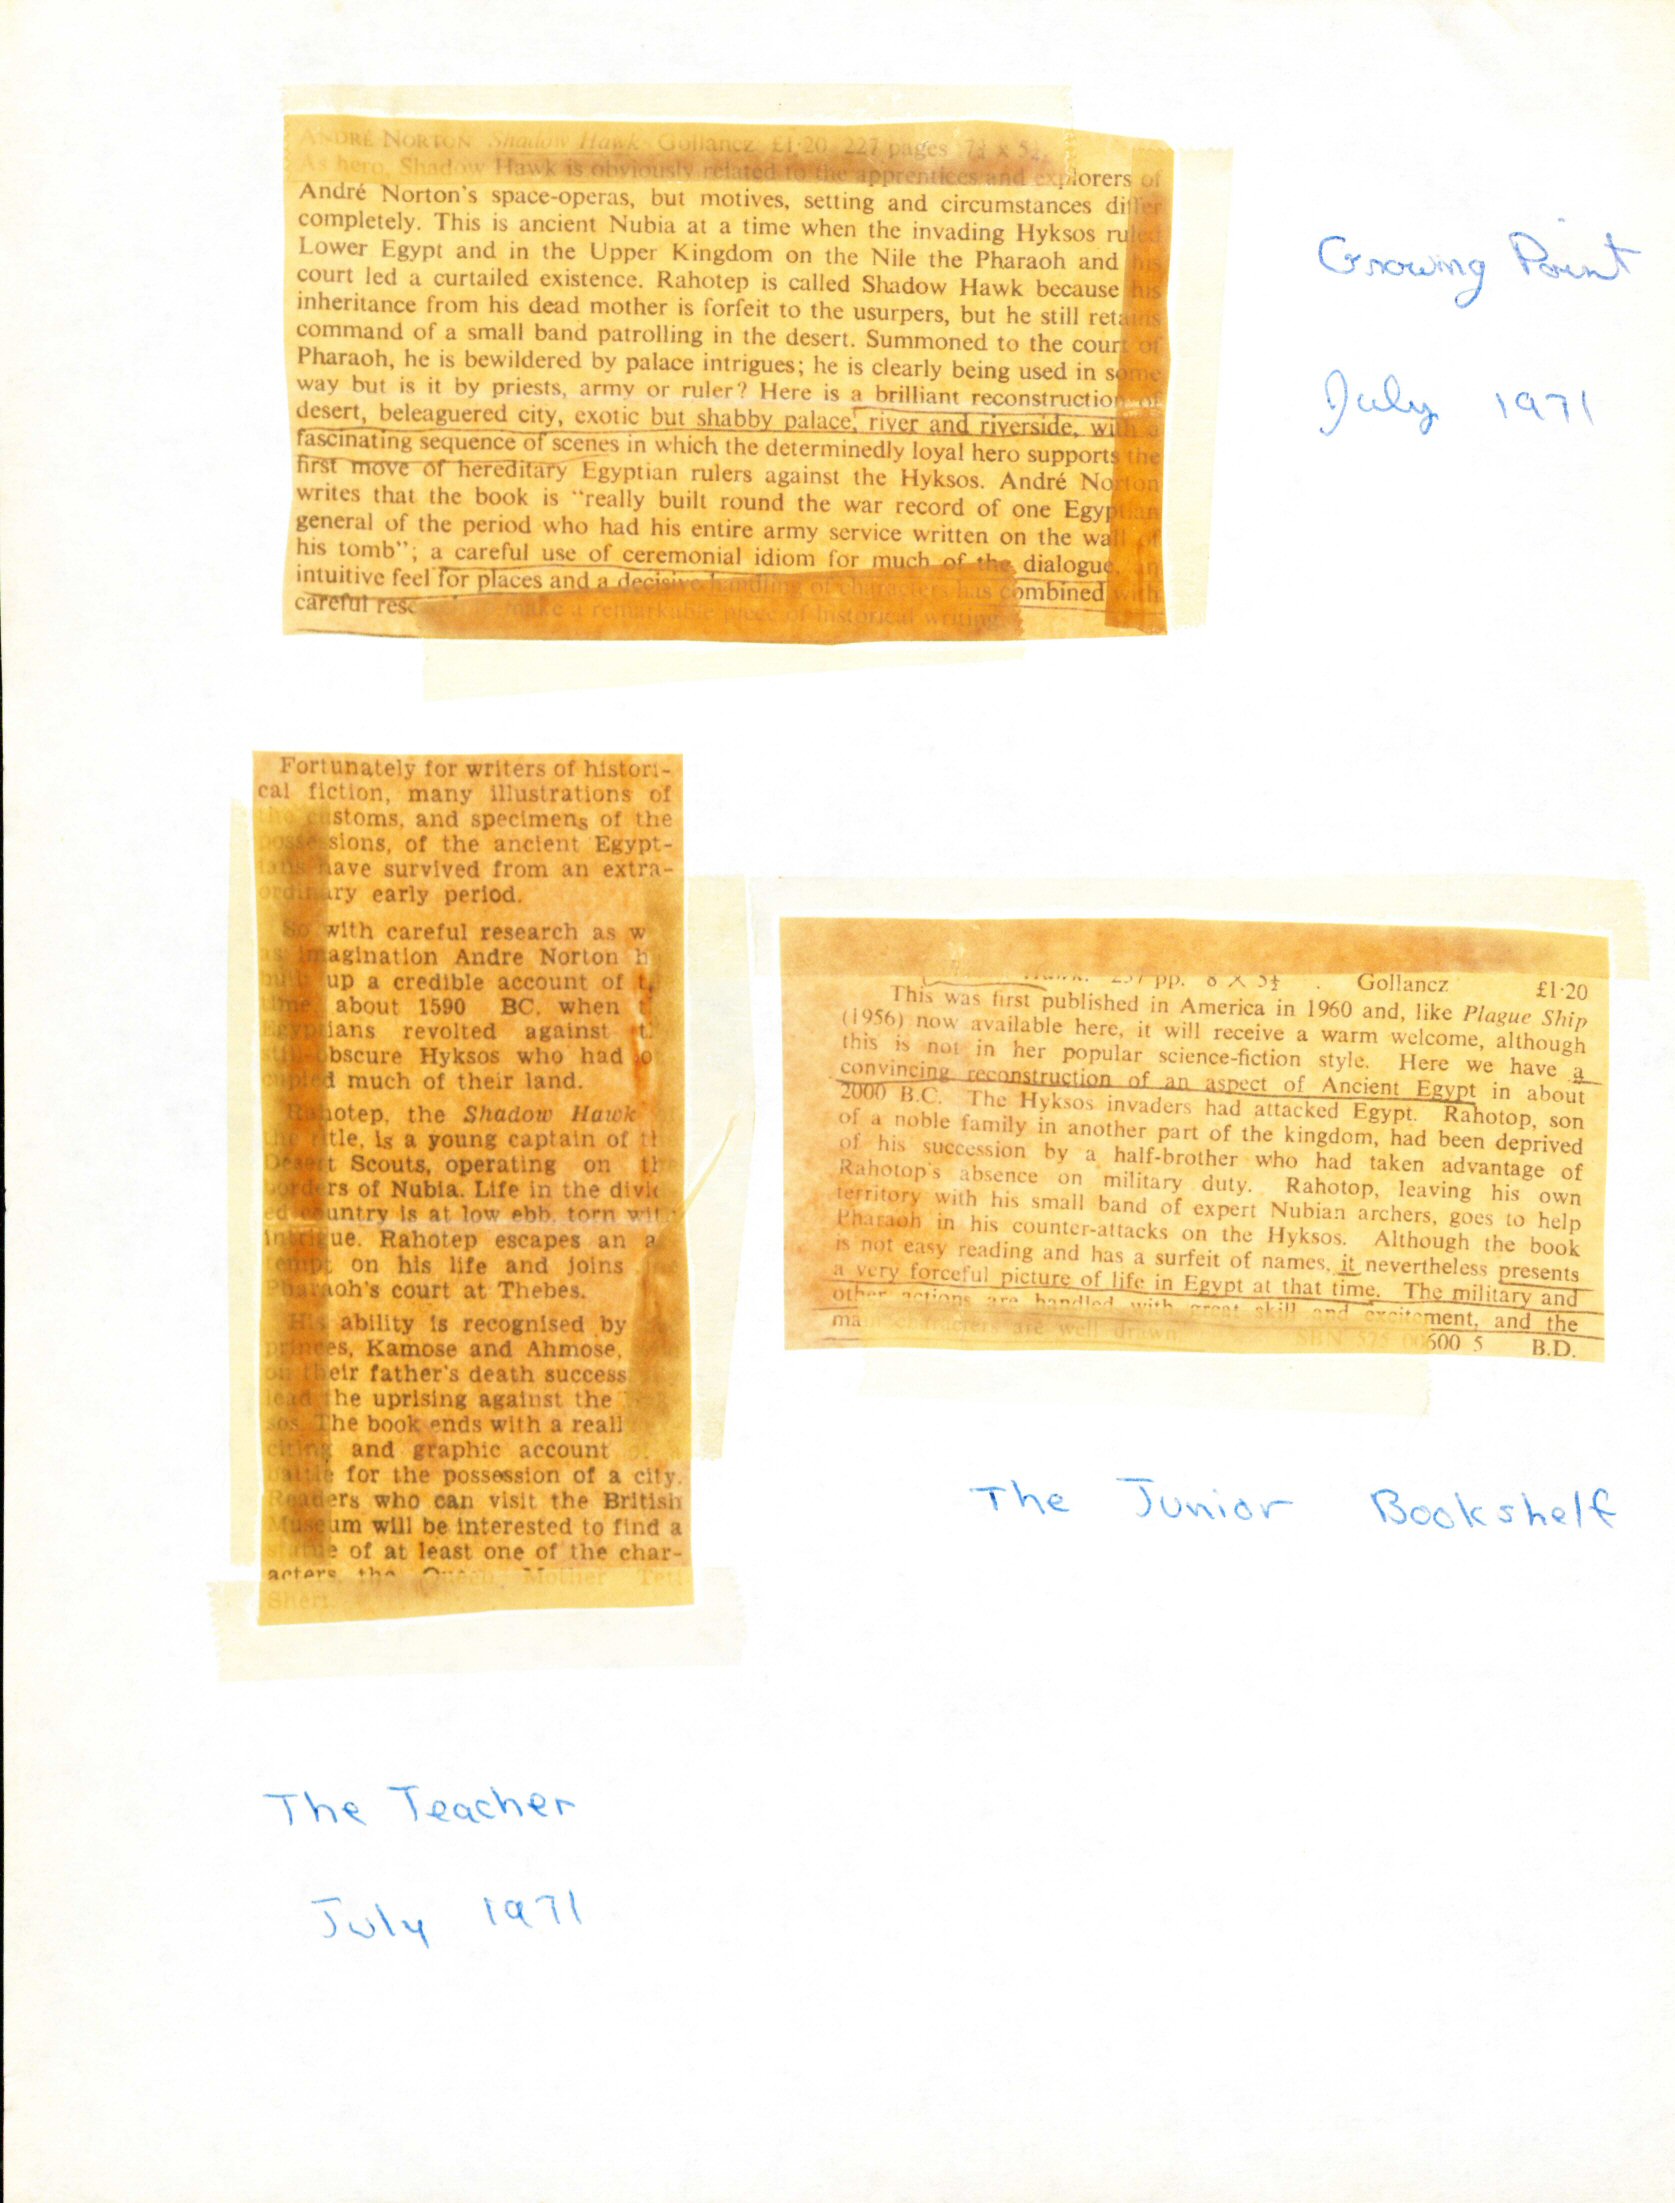 ANDRÉ NORTON Shadow Hawk Gollancz £1·20 227 pages
As hero, Shadow Hawk is obviously related to the apprentices and explorers of
André Norton's space-operas, but motives, setting and circumstances differ
completely. This is ancient Nubia at a time when the invading Hyksos ruled
Lower Egypt and in the Upper Kingdom on the Nile the Pharaoh and his
court led a curtailed existence. Rahotep is called Shadow Hawk because his
inheritance from his dead mother is forfeit to the usurpers, but he still retains
command of a small band patrolling in the desert. Summoned to the court of
Pharaoh, he is bewildered by palace intrigues; he is clearly being used in some
way but is it by priests, army or ruler? Here is a brilliant reconstruction of
desert, beleaguered city, exotic but shabby palace, river and riverside, with a
fascinating sequence of scenes in which the determinedly loyal hero supports the
first move of hereditary Egyptian rulers against the Hyksos. André Norton
writes that the book is "really built round the war record of one Egyptian
general of the period who had his entire army service written on the wall of
his tomb"; a careful use of ceremonial idiom for much of the dialogue, an
intuitive feel for places and a decisive handling of characters has combined with
careful research to make a remarkable piece of historical writing.
Growing Point
July 1971
Fortunately for writers of histori-
cal fiction, many illustrations of
the customs, and specimens of the
possessions, of the ancient Egypt-
ians have survived from an extra-
ordinary early period.
So with careful research as w
as imagination Andre Norton h
built up a credible account of t
time about 1590 BC. when t
Egyptians revolted against t
still obscure Hyksos who had o
cupied much of their land.
Rahotep, the Shadow Hawk
the title, is a young captain of th
Desert Scouts, operating on the
borders of Nubia. Life in the divid
ed country is at low ebb, torn with
intrigue. Rahotep escapes an a
tempt on his life and joins the
Pharaoh's court at Thebes.
His ability is recognised by
princes, Kamose and Ahmose,
on their father's death success
lead the uprising against the
sos. The book ends with a reall
citing and graphic account of a
battle for the possession of a city.
Readers who can visit the British
Museum will be interested to find a
statue of at least one of the char-
acters, the Queen Mother Teti
Sheri.
The Teacher
July 1971
Hawk. 237 pp. 8 × 5¼ . Gollancz £1·20
This was first published in America in 1960 and, like Plague Ship
(1956) now available here, it will receive a warm welcome, although
this is not in her popular science-fiction style. Here we have a
convincing reconstruction of an aspect of Ancient Egypt in about
2000 B.C. The Hyksos invaders had attacked Egypt. Rahotop, son
of a noble family in another part of the kingdom, had been deprived
of his succession by a half-brother who had taken advantage of
Rahotop's absence on military duty. Rahotop, leaving his own
territory with his small band of expert Nubian archers, goes to help
Pharaoh in his counter-attacks on the Hyksos. Although the book
is not easy reading and has a surfeit of names, it nevertheless presents
a very forceful picture of life in Egypt at that time. The military and
other actions are handled with great skill and excitement, and the
main characters are well drawn. SBN 575 00600 5 B.D.
The Junior Bookshelf